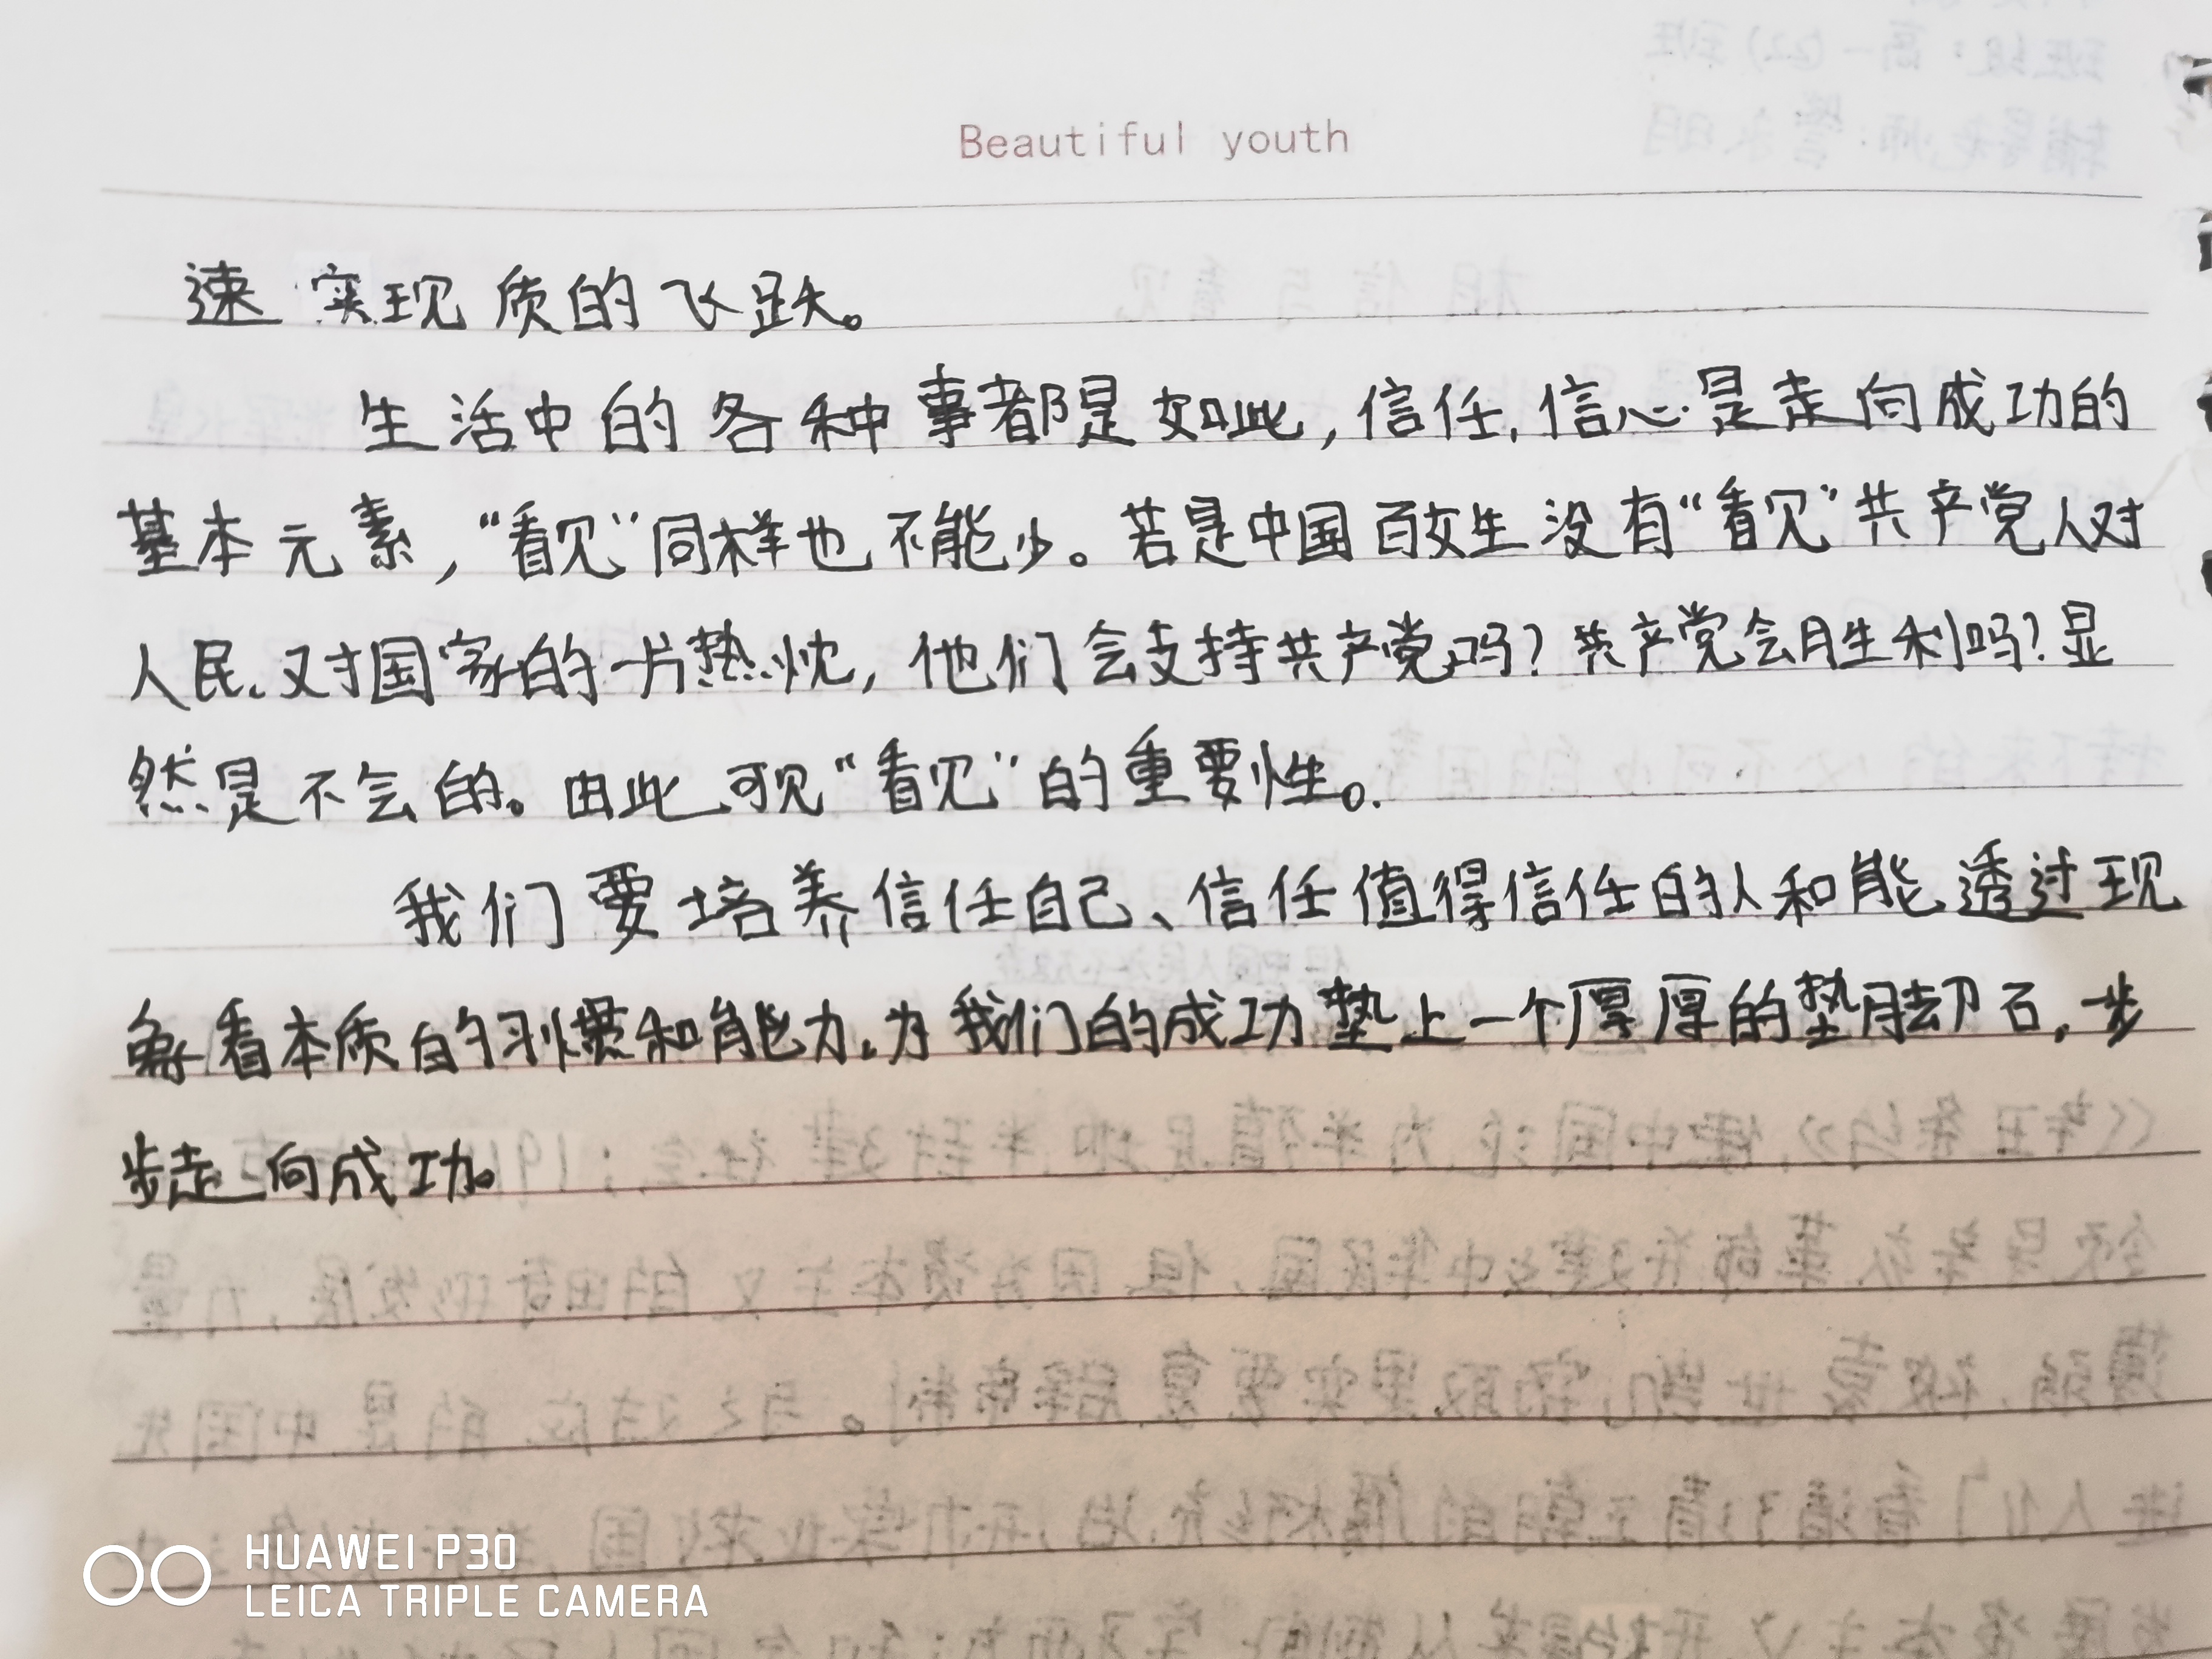 Beautiful youth
速实现质的飞跃。
生活中的各种事都是如此,信任,信心是走向成功的
基本元素,“看见”同样也不能少。若是中国百姓生没有“看见”共产党人对
人民、对国家的一片热忱,他们会支持共产党吗?共产党会胜利吗?显
然是不会的。由此可见“看见”的重要性。
我们要培养信任自己、信任值得信任的人和能透过现
象看本质的习惯和能力,为我们的成功垫上一个厚厚的垫脚石,一步
步走向成功。
HUAWEI P30
LEICA TRIPLE CAMERA